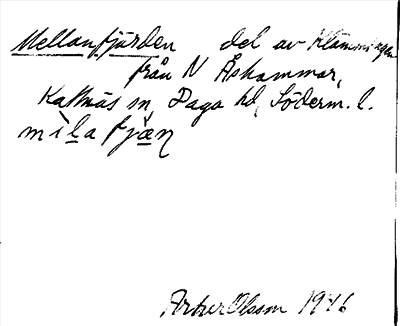 Mellanfjärden del av Klämmingen
från N Åshammar,
Kattnäs sn, Daga hd, Söderm. l.
mìlafjæ̆n
Artur Olsson 1946